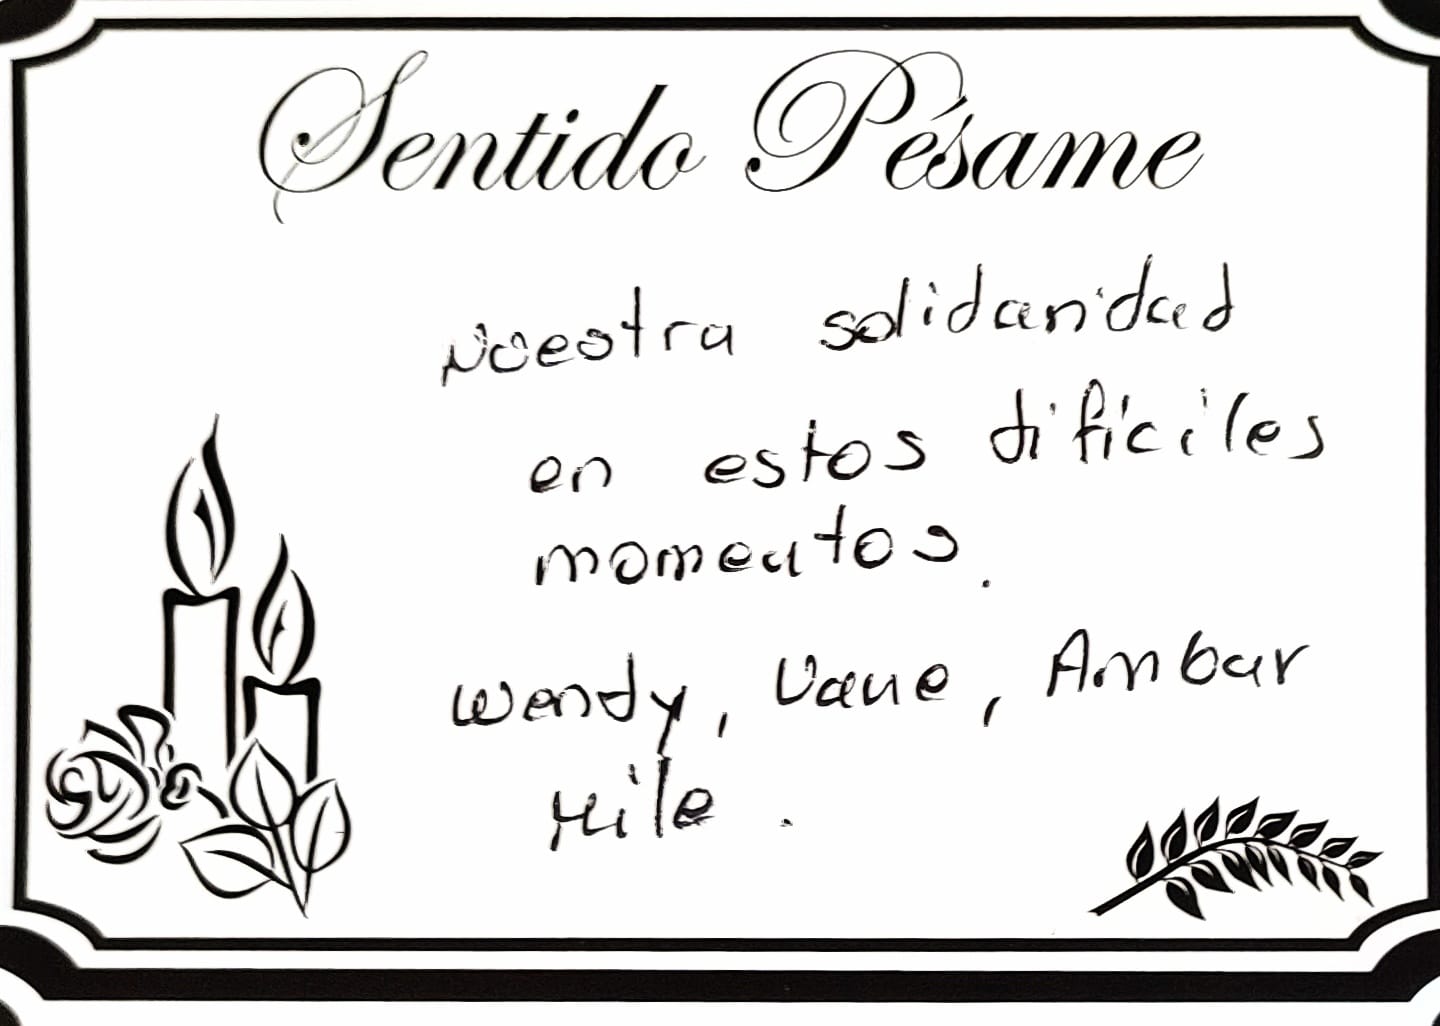 Sentido Pésame
Nuestra solidaridad
en estos difíciles
momentos.
Wendy, Vane, Ambar
Mile.